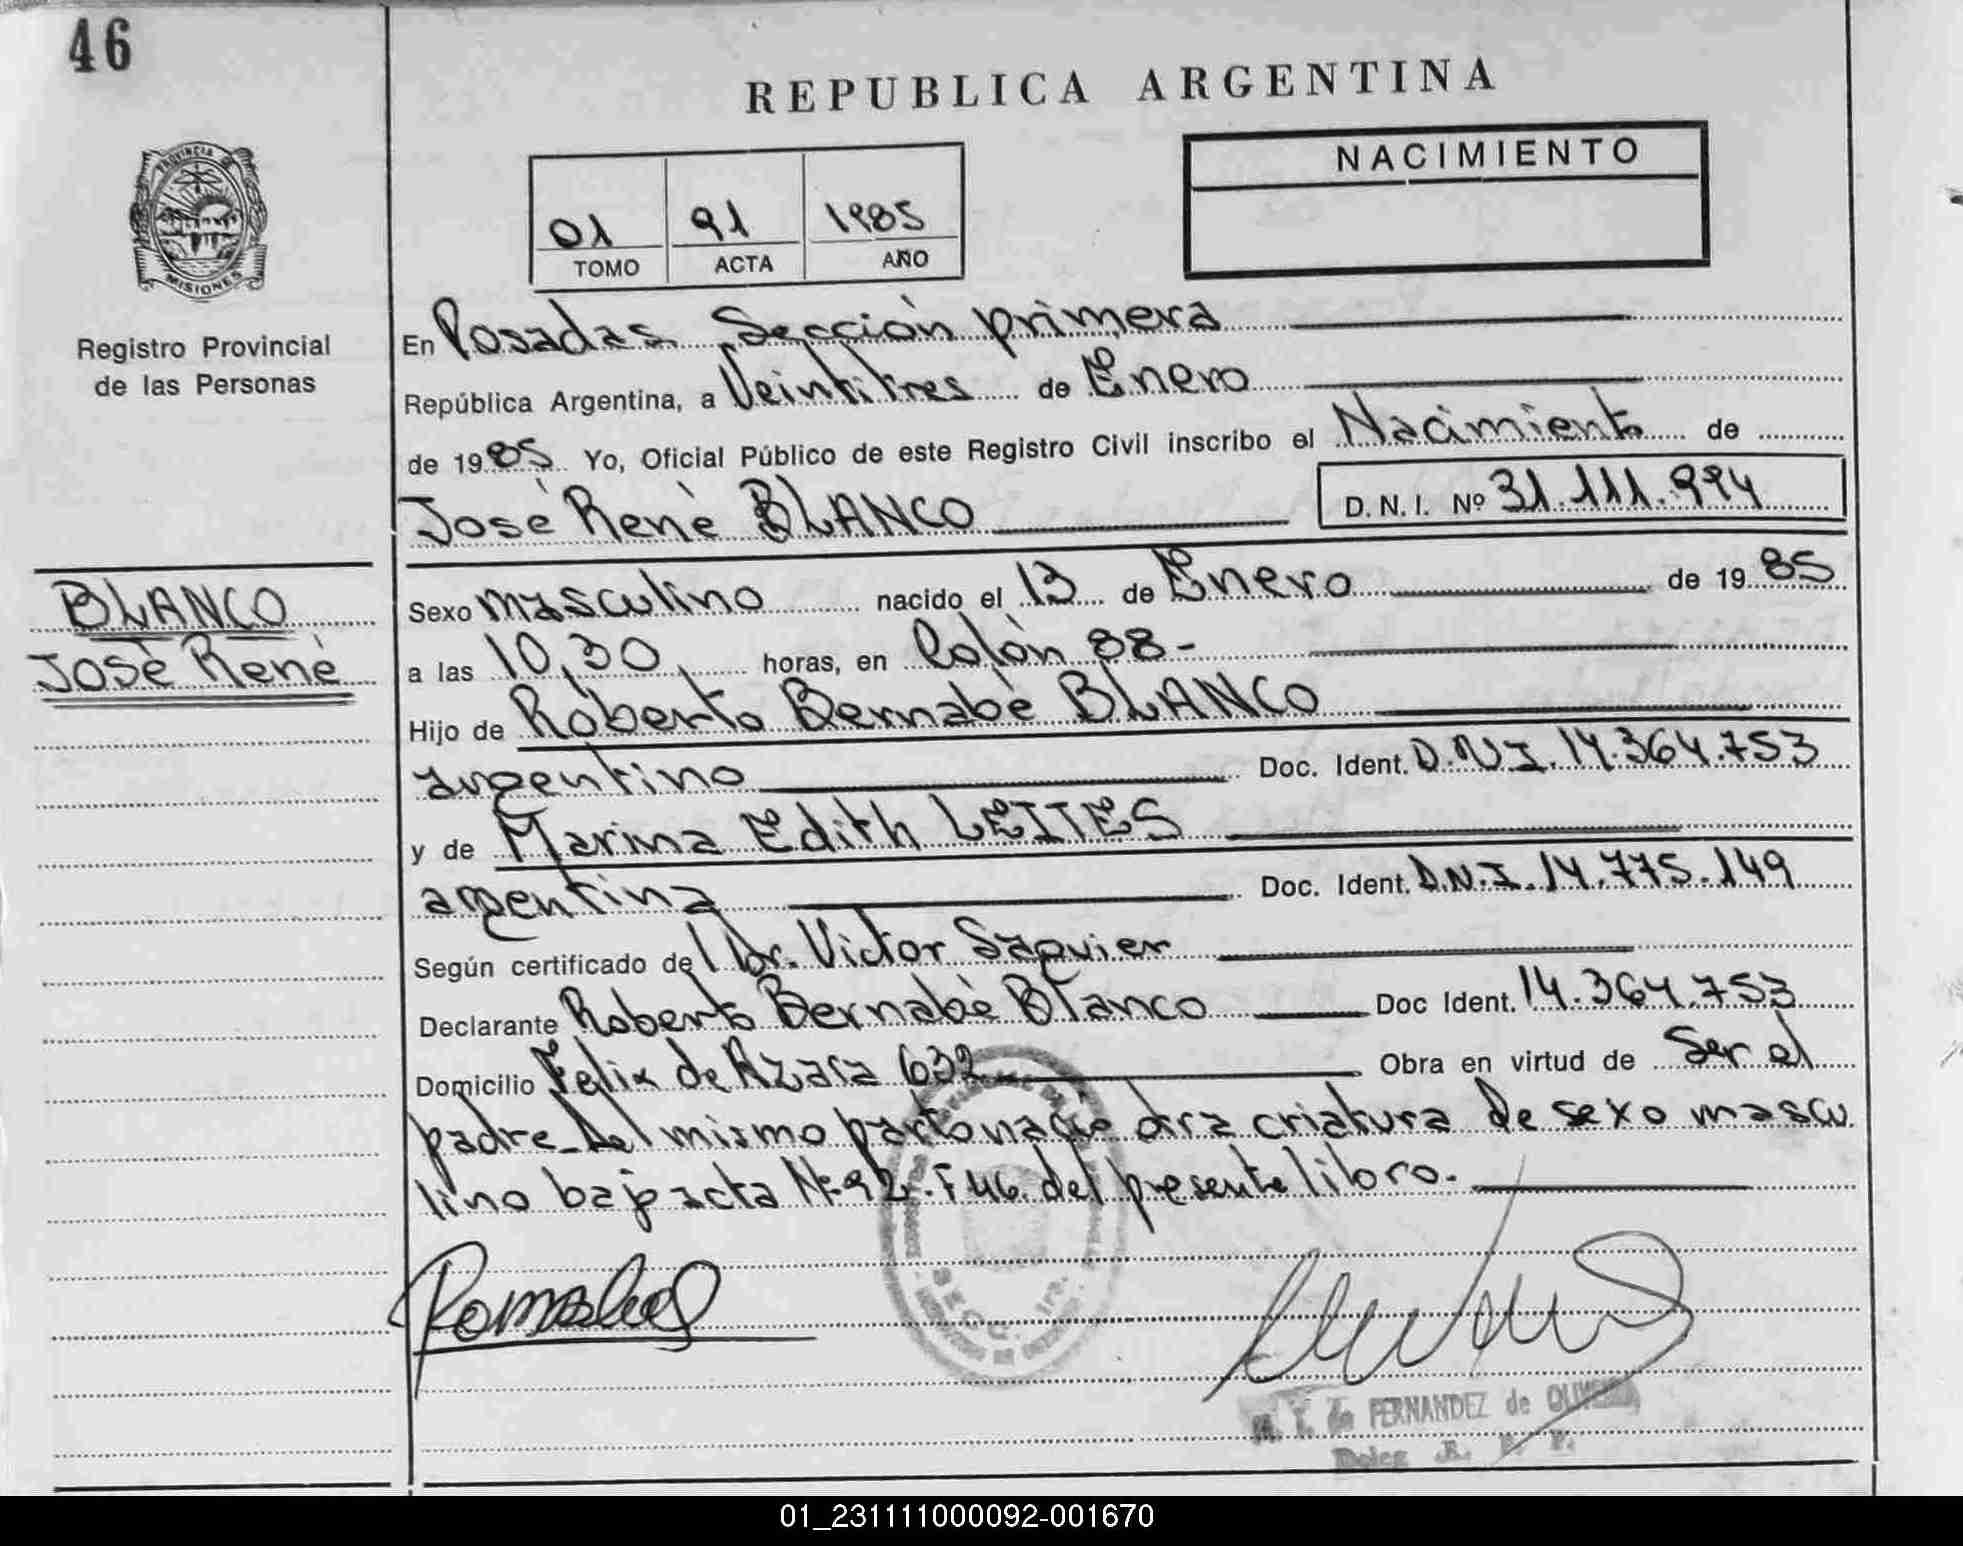 46
REPUBLICA ARGENTINA
PROVINCIA DE
MISIONES
Registro Provincial
de las Personas
01 91 1985
TOMO ACTA AÑO
NACIMIENTO
En Posadas Sección primera
República Argentina, a Veintitres de Enero
de 1985 Yo, Oficial Público de este Registro Civil inscribo el Nacimiento de
José René BLANCO D. N. I. Nº 31.111.994
BLANCO
José René
Sexo masculino nacido el 13 de Enero de 1985
a las 10,30 horas, en Colón 88-
Hijo de Roberto Bernabè BLANCO
argentino Doc. Ident. D.N.I. 14.364.753
y de Marina Edith LEITES
argentina Doc. Ident. D.N.I. 14.775.149
Según certificado del Dr. Victor Saquier
Declarante Roberto Bernabè Blanco Doc Ident. 14.364.753
Domicilio Felix de Azara 632 Obra en virtud de Ser el
padre_Del mismo parto naciò otra criatura de sexo mascu
lino bajo acta Nº 92. F 46. del presente libro.
SECC. 1ra.
FERNANDEZ de
01_231111000092-001670